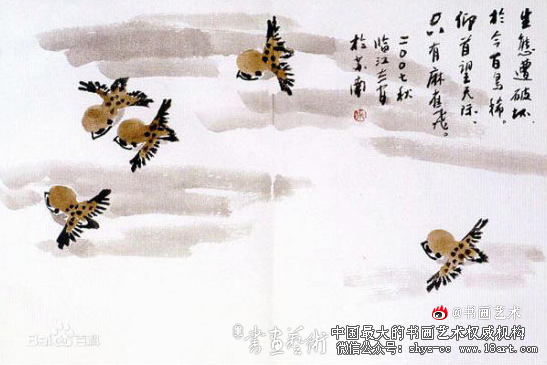 生態遭破坏。
於今百鳥稀。
仰首望天际。
只有麻雀飛。
二〇〇七秋
临江
於
南
@书画艺术
書画藝術
中国最大的书画艺术权威机构
微信公众号: shys-cc www.18art.com
Bai百科